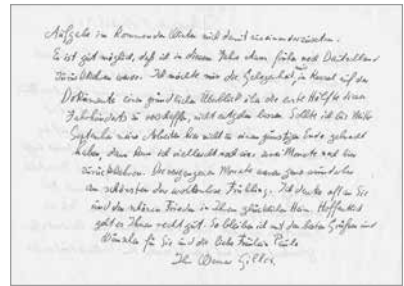 Aufgabe im kommenden Winter mich damit auseinanderzusetzen.
Es ist gut möglich, daß ich in diesem Jahr schon früher nach Deutschland
zurückkehren werde. Ich möchte mir die Gelegenheit, in Kassel auf der
Dokumenta einen gründlichen Überblick über die erste Hälfte dieses
Jahrhunderts zu verschaffen, nicht entgehen lassen. Sollte ich bis Mitte
September meine Arbeiten hier nicht zu einem günstigen Ende gebracht
haben, dann kann ich vielleicht noch ein zwei Monate nach hier
zurückkehren. Die vergangenen Monate waren ganz wunderbar
am schönsten der wolkenlose Frühling. Ich denke oft an Sie
und den schönen Frieden in Ihrem glücklichen Heim. Hoffentlich
geht es Ihnen recht gut. So bleiben ich mit den besten Grüßen und
Wünschen für Sie und die liebe Fräulein Paula
Ihr Werner Gilles.